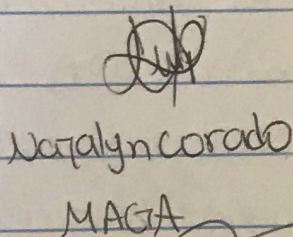 Nazalyn corado
MAGA